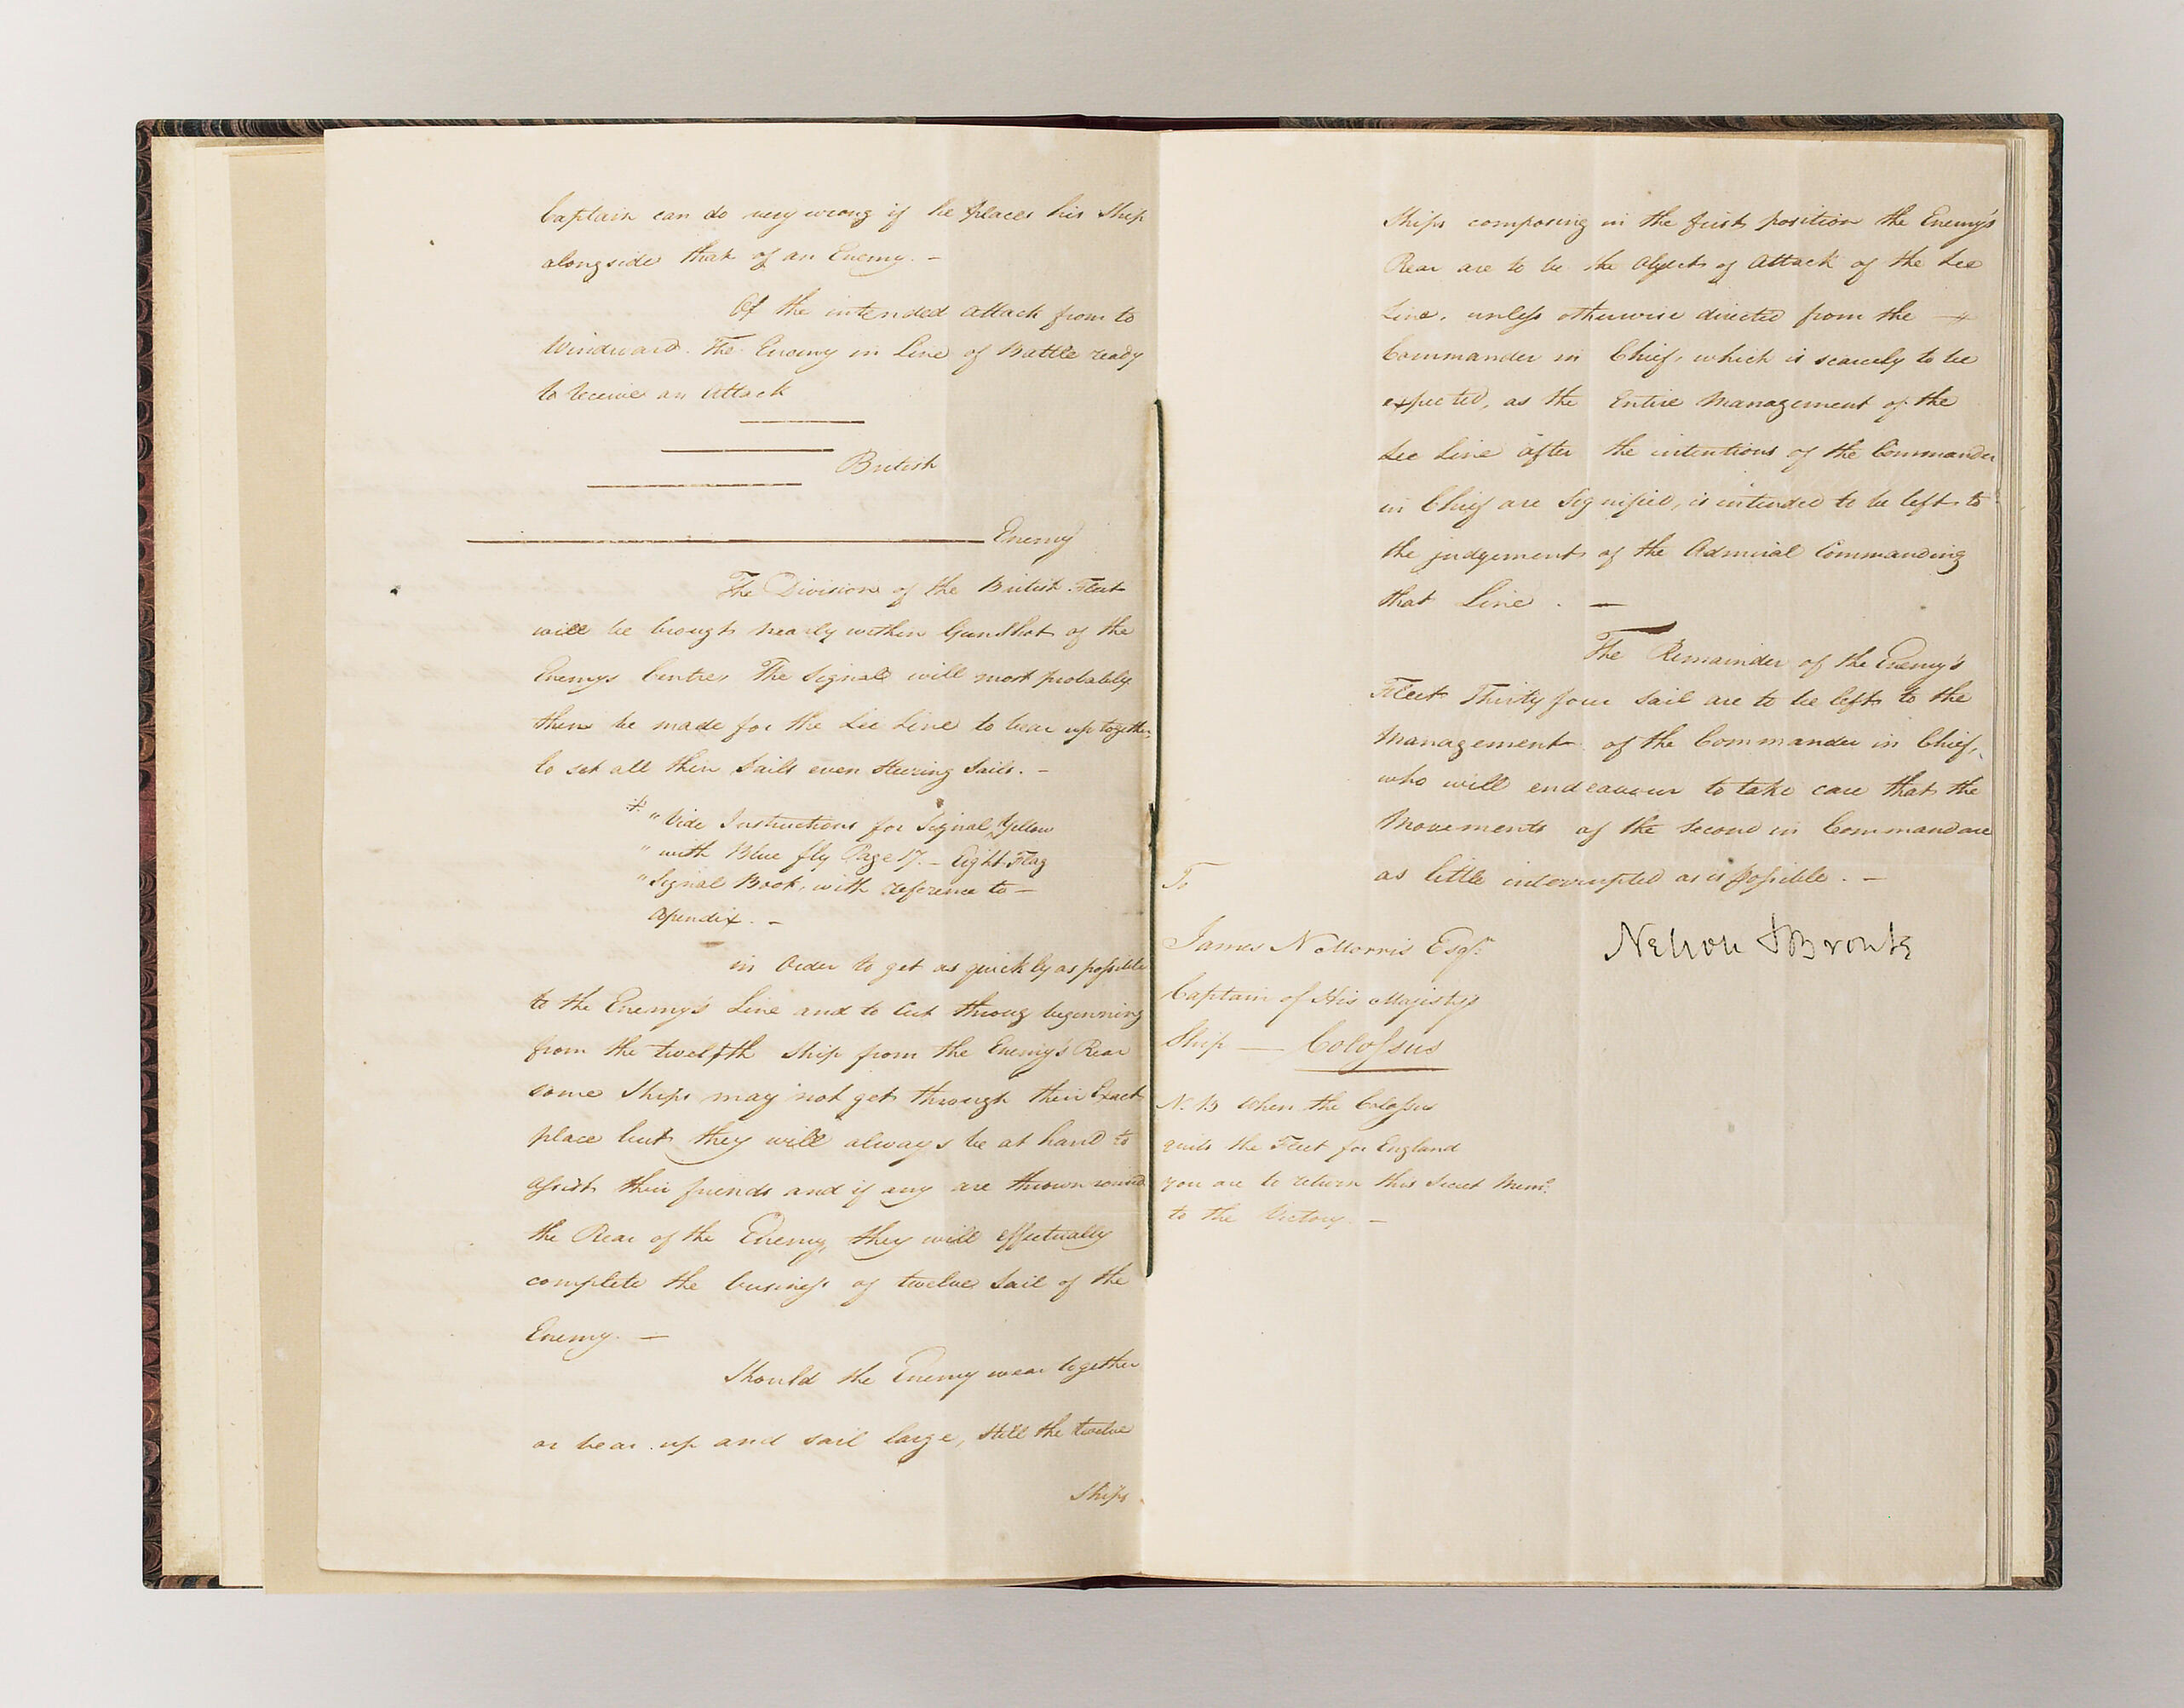 Captain can do very wrong if he places his Ship
alongside that of an Enemy. –
Of the intended attack from to
Windward. The Enemy in Line of Battle ready
to receive an Attack
British
Enemy
The Division of the British Fleet
will be brought nearly within Gun Shot of the
Enemys Centre, The Signal will most probably
then be made for the Lee Line to bear up together,
to set all their Sails even steering Sails. –
* " Vide Instructions for Signal Yellow
" with Blue fly Page 17. – Eight Flag
" Signal Book, with reference to –
Apendix. –
in Order to get as quickly as possible
to the Enemy's Line and to Cut throug beginning
from the twelfth Ship from the Enemy's Rear
some Ships may not get through their Exact
place but they will always be at hand to
assist their friends and if any are thrown round
the Rear of the Enemy, they will effectually
complete the business of twelve Sail of the
Enemy. –
Should the Enemy wear together
or bear up and sail large, still the twelve
Ships
Ships composing in the first position the Enemy's
Rear are to be the Object of Attack of the Lee
Line, unless otherwise directed from the
Commander in Chief, which is scarcely to be
expected, as the Entire Management of the
Lee Line after the intentions of the Commander
in Chief are Signified, is intended to be left to
the judgement of the Admiral Commanding
that Line. –
The Remainder of the Enemy's
Fleet Thirty four Sail are to be left to the
Management of the Commander in Chief,
who will endeavour to take care that the
Movements of the Second in Command are
as little interrupted as is possible. –
Nelson & Bronte
To
James N Morris Esqr.
Captain of His Majestys
Ship — Colossus
N. B When the Colossus
quits the Fleet for England
you are to return this Secret Memo.
to the Victory. –